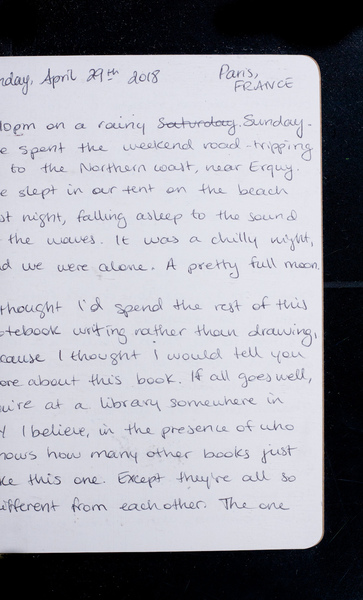 rday, April 29th 2018 Paris,
FRANCE
10pm on a rainy Saturday Sunday.
e spent the weekend road-tripping
to the Northern coast, near Erquy.
e slept in our tent on the beach
st night, falling asleep to the sound
the waves. It was a chilly night,
d we were alone. A pretty full moon.
thought I'd spend the rest of this
otebook writing rather than drawing,
cause I thought I would tell you
ore about this book. If all goes well,
u're at a library somewhere in
Y I believe, in the presence of who
nows how many other books just
ke this one. Except they're all so
ifferent from each other. The one